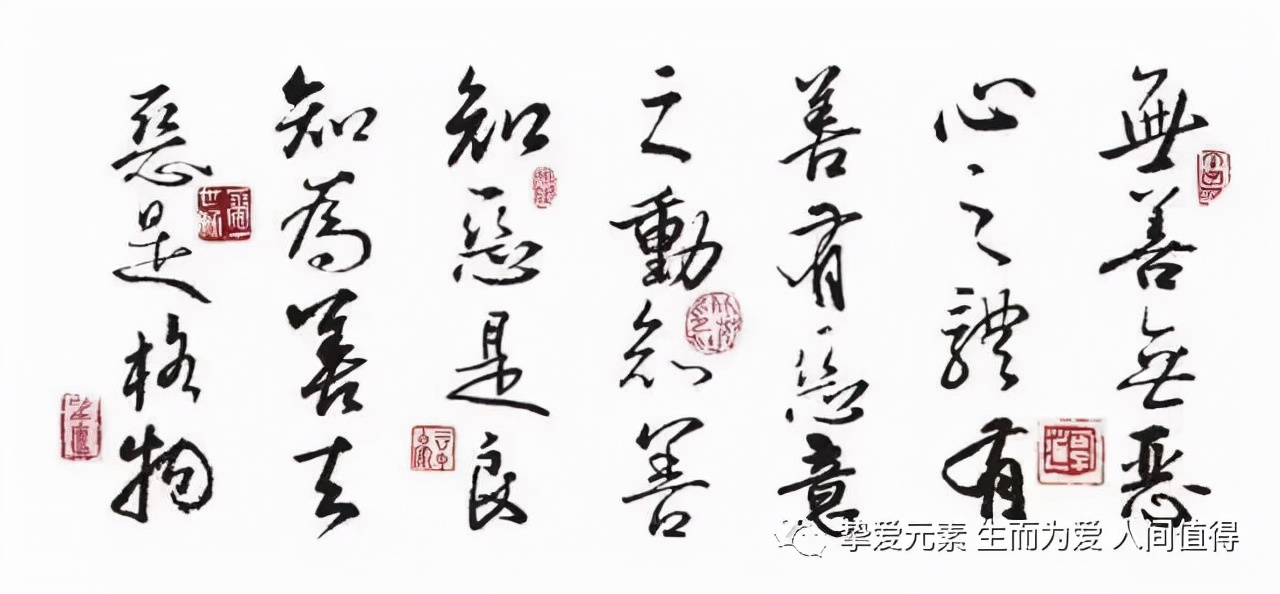 無善無惡
心之體有
善有惡意
之動知善
知惡是良
知為善去
惡是格物
挚爱元素 生而为爱 人间值得